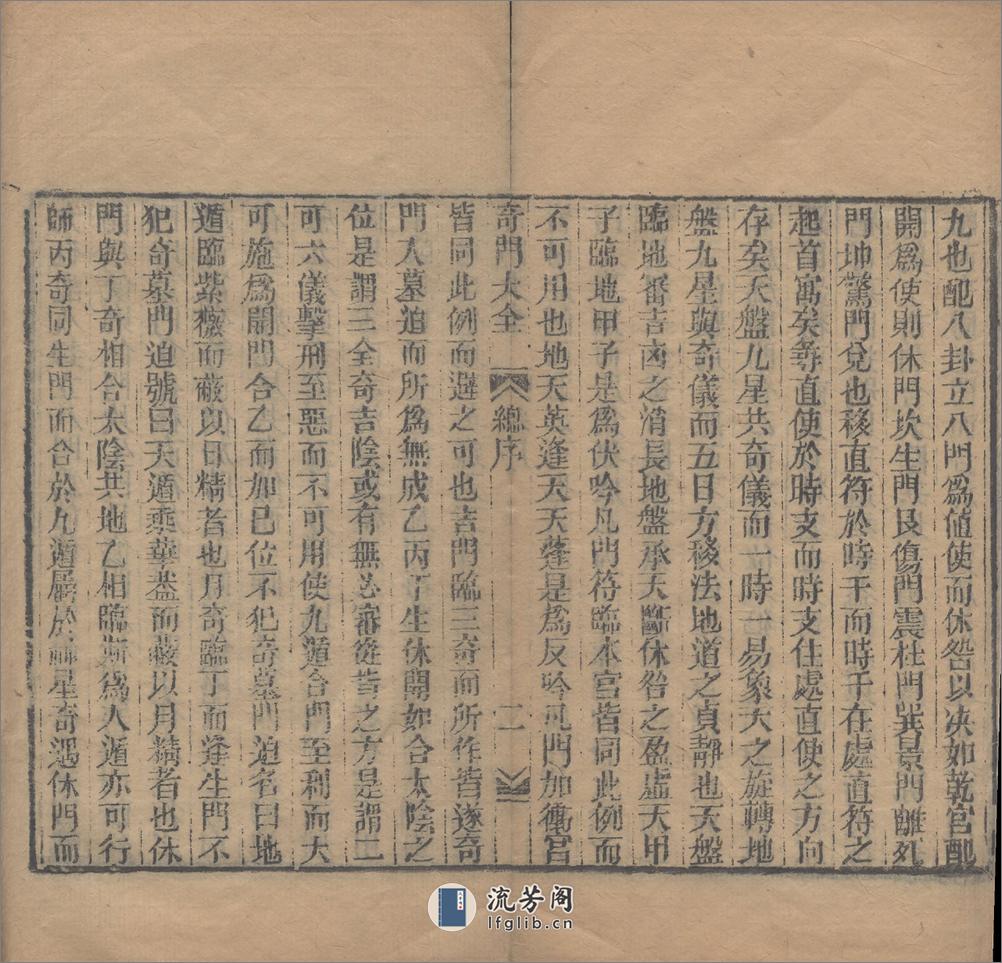 九也配八卦立八門爲値使而休咎以决如乾宮配
開爲使則休門坎生門艮傷門震杜門巽景門離死
門坤驚門兌也移直符於時干而時干在處直符之
起首寓矣尋直使於時支而時支住處直使之方向
存矣天盤九星共奇儀而一時一易象天之旋轉地
盤九星與奇儀而五日方移法地道之貞靜也天盤
臨地審吉凶之消長地盤承天斷休咎之盈虛天甲
子臨地甲子是爲伏吟凡門符臨本宮皆同此例而
不可用也地天英逢天天蓬是爲反吟凡門加衝宮
奇門大全 總序 二
皆同此例而避之可也吉門臨三奇而所作皆遂奇
門入墓迫而所爲無成乙丙丁生休開如合太陰之
位是謂三全奇吉陰或有無必審從皆之方是謂二
可六儀擊刑至惡而不可用使九遁合門至利而大
可施爲開門合乙而加己位不犯奇墓門迫名曰地
遁臨紫薇而蔽以日精者也月奇臨丁而逢生門不
犯奇墓門迫號曰天遁乘華葢而蔽以月精者也休
門與丁奇相合太陰共地乙相臨斯爲人遁亦可行
師丙奇同生門而合於九遁屬於神星奇遇休門而
流芳阁
lfglib.cn